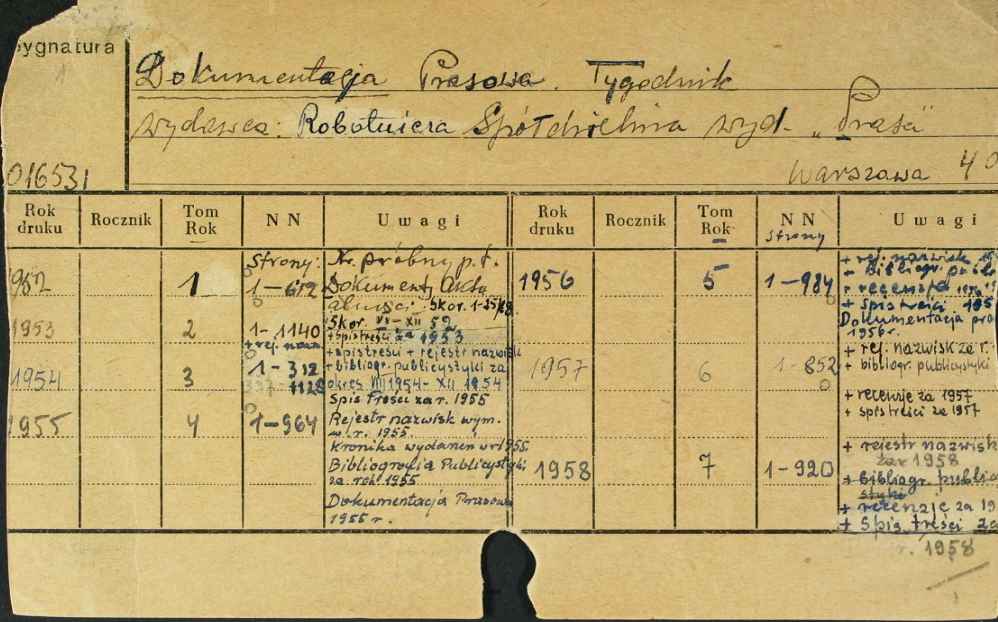 Sygnatura
Dokumentacja Prasowa. Tygodnik
wydawca: Robotnicza Spółdzielnia wyd. „Prasa"
016531
Warszawa 40
Rok druku Rocznik Tom Rok NN Uwagi Rok druku Rocznik Tom Rok NN Strony Uwagi
1952 1 Strony: 1-612 Nr. próbny p.t.
Dokumenty
Skor. 1-25/
Skor. VI-XII 52
1953 2 1-1140 + spis treści za 1953
+ rej. nazw.
+ spis treści + rejestr nazwisk
1954 3 1-312 + bibliogr. publicystyki za
337-1128 okres VII 1954- XII 1954
Spis treści za r. 1955
1955 4 1-964 Rejestr nazwisk wym.
w r. 1955
Kronika wydarzeń w r 1955.
Bibliografia Publicystyki
za rok 1955
Dokumentacja Prasowa
1955 r.
1956 5 1-984 + rej. nazwisk
+ Bibliogr.
+ recenzje
+ spis treści 195
Dokumentacja pra
1956 r.
+ rej. nazwisk za r.
1957 6 1-852 + bibliogr. publicystyki
+ recenzje za 1957
+ spis treści za 1957
+ rejestr nazwisk
za r 1958
1958 7 1-920 + bibliogr. public
styki
+ recenzje za 19
+ Spis treści za
r. 1958